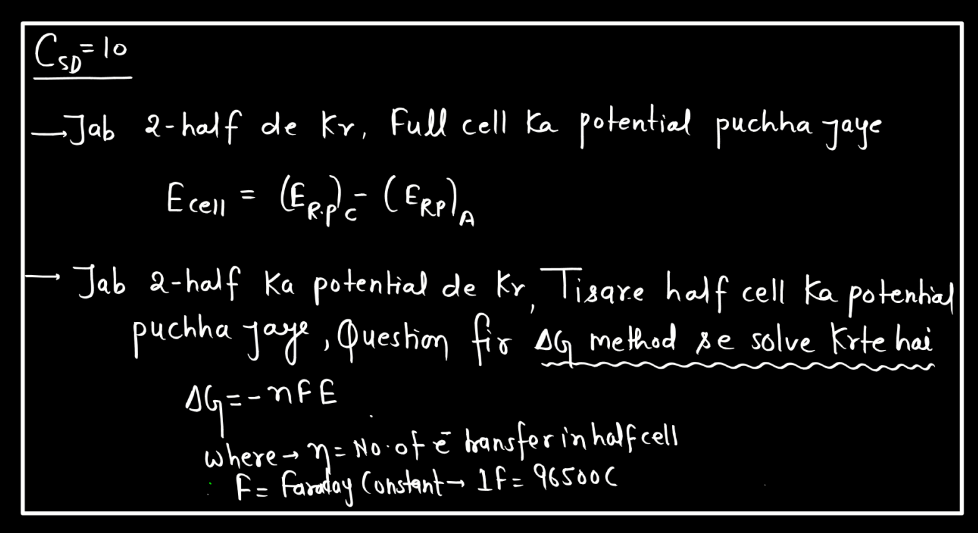 C_SD = 10
→ Jab 2-half de Kr, Full cell Ka potential puchha jaye
E cell = (E_R.P)_C - (E_RP)_A
→ Jab 2-half Ka potential de Kr, Tisare half cell Ka potential
puchha jaye, Question fir ΔG method se solve Krte hai
ΔG = -nFE
where → η = No. of e⁻ transfer in half cell
F = Faraday Constant → 1F = 96500C